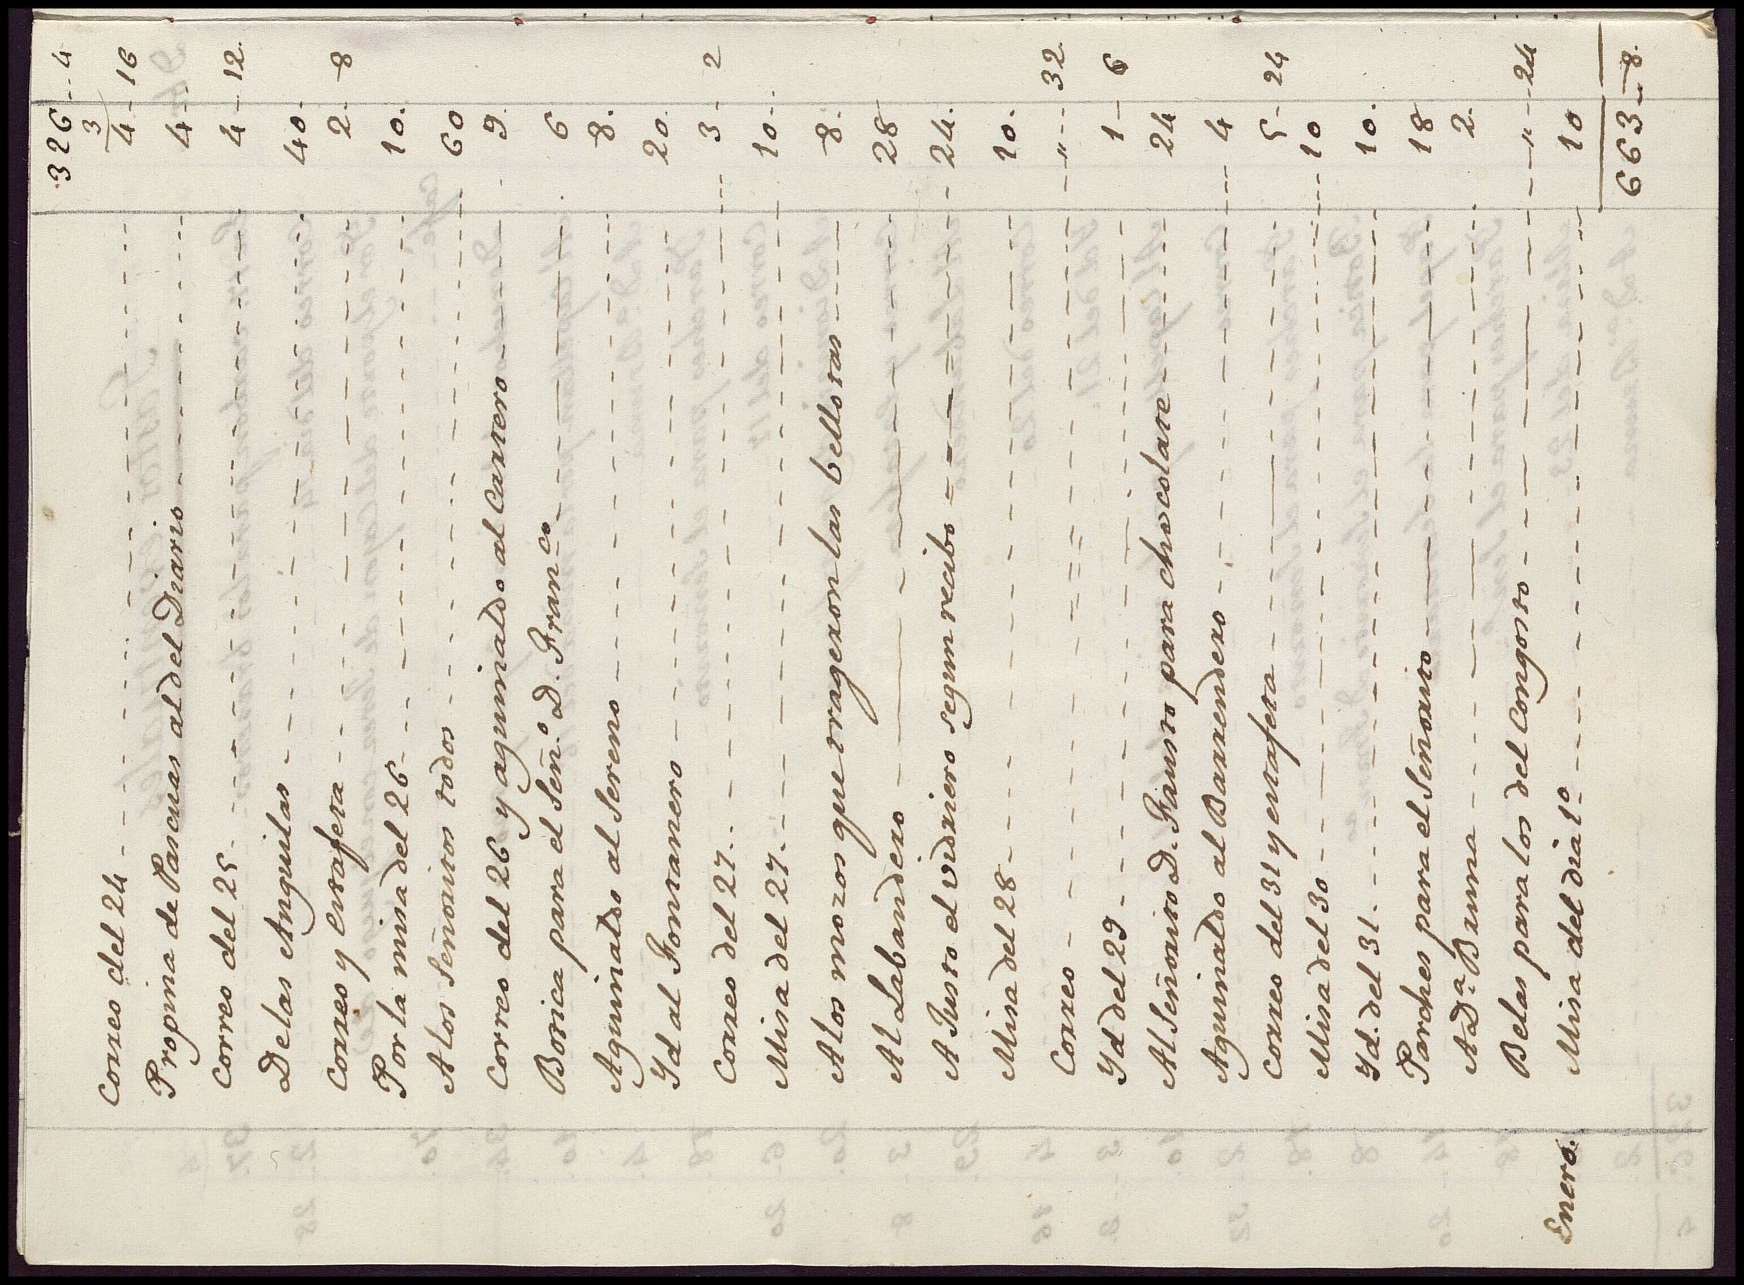 326 - 4
Correo del 24 - 4 - 16
Propina de Pascuas al del Diario - 4
Correo del 25 - 4 - 12
De las Anguilas - 40
Correo y estafeta - 2 - 8
Por la misa del 26 - 10
A los Señoritos todos - 60
Correo del 26 y aguinaldo al cartero - 9
Botica para el Señ.º D. Fran.co - 6
Aguinaldo al Sereno - 8
Yd al Fontanero - 20
Correo del 27 - 3 - 2
Misa del 27 - 10
A los mozos que trageron las bellotas - 8
Al Labandero - 28
A Justo el vidriero segun recibo - 24
Misa del 28 - 10
Correo - " - 32
Yd del 29 - 1 - 6
Al Señorito D. Fausto para chocolate - 24
Aguinaldo al Barrendero - 4
Correo del 31 y estafeta - 5 - 24
Misa del 30 - 10
Yd. del 31 - 10
Parches para el Señorito - 18
A D.ª Bruna - 2
Belas para los del Congosto - " - 24
Enero. Misa del dia 1º - 10
663 - 8